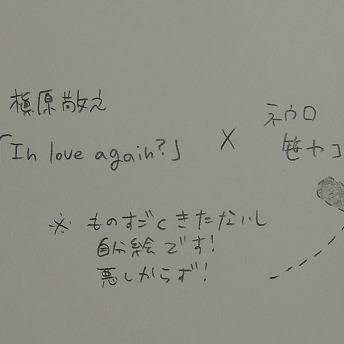 槇原敬之
「In love again?」 × ネウロ
笹ヤコ
※ ものすごくきたないし
自分絵です!
悪しからず!